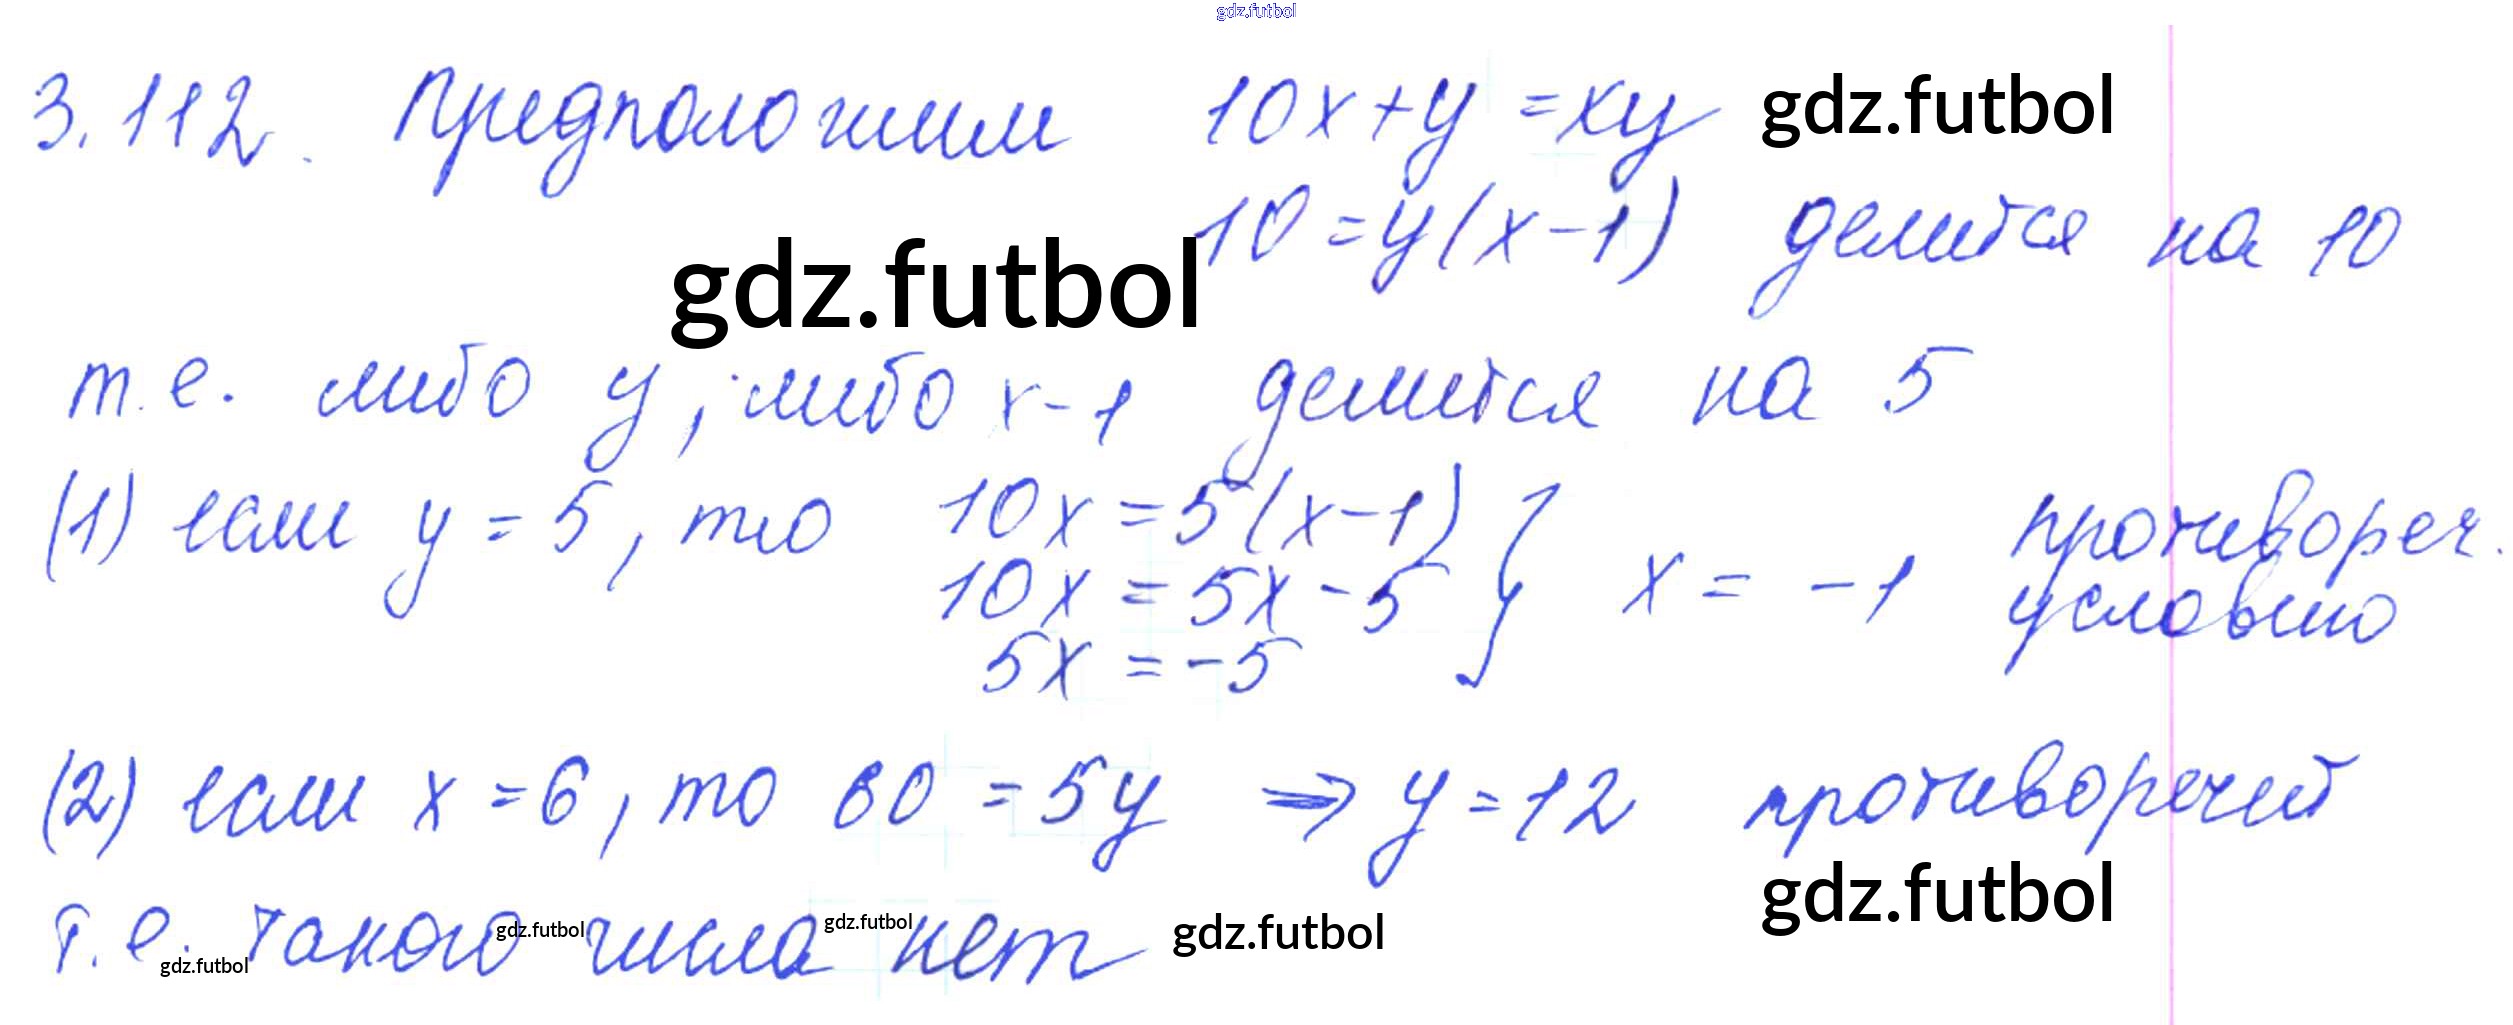 gdz.futbol
3.112. Предположим 10x+y=xy gdz.futbol
10=y(x-1) делится на 10
gdz.futbol
т.е. либо y, либо x-1 делится на 5
(1) если y=5, то 10x=5(x-1) } x=-1, противореч.
10x=5x-5 условию
5x=-5
(2) если x=6, то 60=5y ⇒ y=12 противоречит
gdz.futbol
т.е. такого числа нет gdz.futbol
gdz.futbol gdz.futbol gdz.futbol